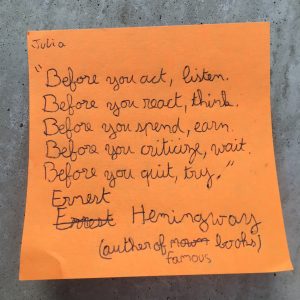 Julia
"Before you act, listen.
Before you react, think.
Before you spend, earn.
Before you criticize, wait.
Before you quit, try."
Ernest
Hemingway
(auther of books)
famous